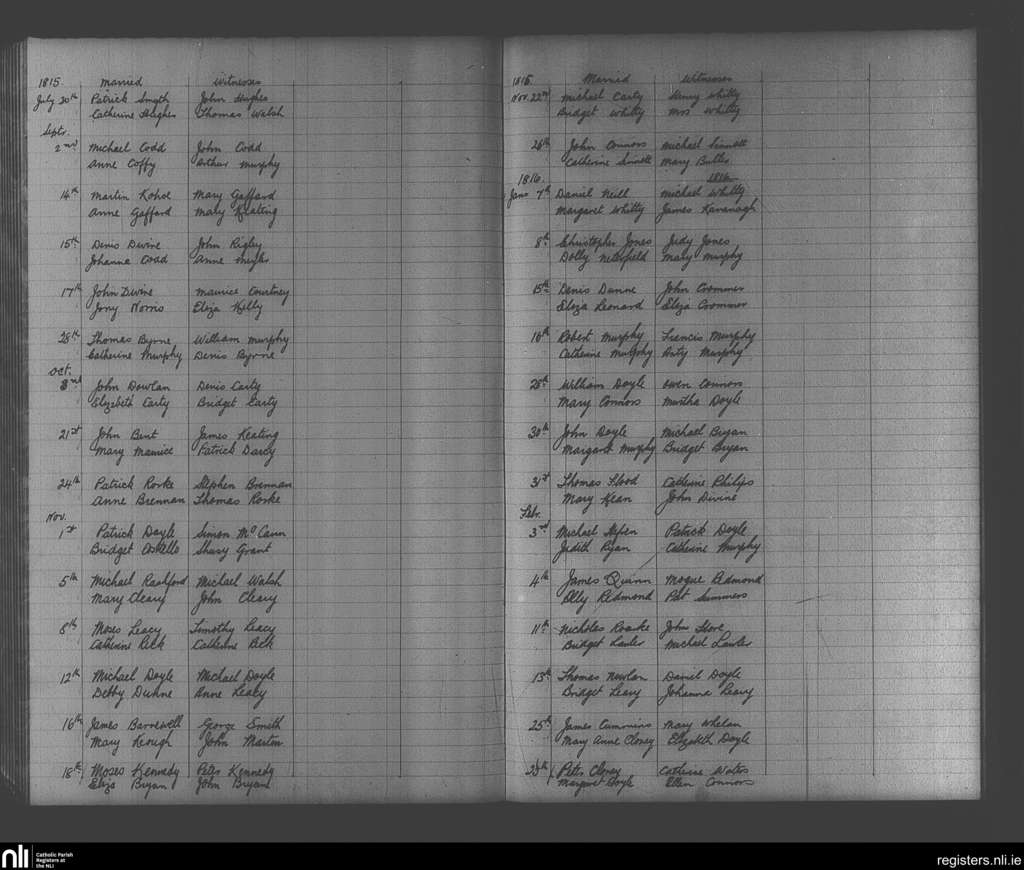 1815 Married Witnesses
July 20th Patrick Smyth John Hughes
Catherine Hughes Thomas Walsh
Septr.
2nd Michael Codd John Codd
Anne Coffy Arthur Murphy
14th Martin Kehoe Mary Gafford
Anne Gafford Mary Keating
15th Denis Devine John Rigley
Johanna Codd Anne
17th John Devine Maurice Courtney
Norris Eliza Kelly
28th Thomas Byrne William Murphy
Catherine Murphy Denis Byrne
Oct.
John Dowlan Denis Carty
Elizabeth Carty Bridget Carty
21st John Bent James Keating
Mary Maurice Patrick Darcy
24th Patrick Rorke Stephen Brennan
Anne Brennan Thomas Rorke
Nov.
1st Patrick Doyle Simon McCann
Bridget Grant
5th Michael Rashford Michael Walsh
Mary Cleary John Cleary
8th Moses Leacy Timothy Leacy
Catherine Catherine
12th Michael Doyle Michael Doyle
Debby Duhne Anne Leacy
16th James Barnewell George Smith
Mary Keough John Martin
18th Moses Kennedy Peter Kennedy
Eliza Bryan John Bryan
1815 Married Witnesses
Nov. 22nd Michael Carty Henry Whitty
Bridget Whitty Mrs Whitty
26th John Connors Michael Sinnott
Catherine Sinnott Mary Butler
1816. 1816
Jany 7th Daniel Neill Michael Whitty
Margaret Whitty James Kavanagh
8th Christopher Jones Judy Jones
Dolly Neterfield Mary Murphy
15th Denis Dunne John Crommer
Eliza Leonard Eliza Crommer
16th Robert Murphy Francis Murphy
Catherine Murphy Anty Murphy
25th William Doyle Owen Connors
Mary Connors Murtha Doyle
30th John Doyle Michael Bryan
Margaret Murphy Bridget Bryan
31st Thomas Flood Catherine Philips
Mary Kean John Divine
Febr.
3rd Michael Patrick Doyle
Judith Ryan Catherine Murphy
4th James Quinn Mogue Redmond
Elly Redmond Pat Summers
11th Nicholas Roarke John
Bridget Lawler Michael Lawler
13th Thomas Nowlan Daniel Doyle
Bridget Leary Johanna Leary
25th James Cummins Mary Whelan
Mary Anne Cloney Elizabeth Doyle
Peter Cloney Catherine Waters
Margaret Doyle Ellen Connors
nli
Catholic Parish
Registers at
the NLI
registers.nli.ie